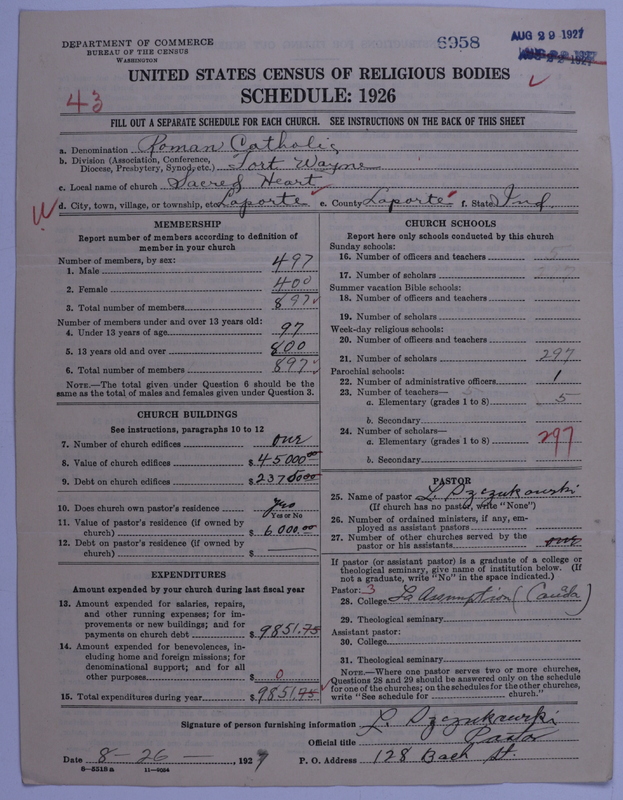 DEPARTMENT OF COMMERCE
BUREAU OF THE CENSUS
WASHINGTON
6958
AUG 29 1927
UNITED STATES CENSUS OF RELIGIOUS BODIES
SCHEDULE: 1926
43
FILL OUT A SEPARATE SCHEDULE FOR EACH CHURCH. SEE INSTRUCTIONS ON THE BACK OF THIS SHEET
a. Denomination Roman Catholic
b. Division (Association, Conference, Diocese, Presbytery, Synod, etc.) Fort Wayne
c. Local name of church Sacred Heart
d. City, town, village, or township, etc. Laporte e. County Laporte f. State Ind.
MEMBERSHIP
Report number of members according to definition of
member in your church
Number of members, by sex:
1. Male 497
2. Female 400
3. Total number of members 897
Number of members under and over 13 years old:
4. Under 13 years of age 97
5. 13 years old and over 800
6. Total number of members 897
NOTE.—The total given under Question 6 should be the
same as the total of males and females given under Question 3.
CHURCH BUILDINGS
See instructions, paragraphs 10 to 12
7. Number of church edifices one
8. Value of church edifices $ 45000.00
9. Debt on church edifices $
10. Does church own pastor's residence Yes
Yes or No
11. Value of pastor's residence (if owned by
church) $ 6000.00
12. Debt on pastor's residence (if owned by
church) $
EXPENDITURES
Amount expended by your church during last fiscal year
13. Amount expended for salaries, repairs,
and other running expenses; for im-
provements or new buildings; and for
payments on church debt $ 9851.75
14. Amount expended for benevolences, in-
cluding home and foreign missions; for
denominational support; and for all
other purposes $ 0
15. Total expenditures during year $ 9851.75
CHURCH SCHOOLS
Report here only schools conducted by this church
Sunday schools:
16. Number of officers and teachers 5
17. Number of scholars
Summer vacation Bible schools:
18. Number of officers and teachers
19. Number of scholars
Week-day religious schools:
20. Number of officers and teachers
21. Number of scholars 297
Parochial schools:
22. Number of administrative officers 1
23. Number of teachers—
a. Elementary (grades 1 to 8) 5
b. Secondary
24. Number of scholars—
a. Elementary (grades 1 to 8) 297
b. Secondary
PASTOR
25. Name of pastor L. Dzczukowski
(If church has no pastor, write "None")
26. Number of ordained ministers, if any, em-
ployed as assistant pastors
27. Number of other churches served by the
pastor or his assistants one
If pastor (or assistant pastor) is a graduate of a college or
theological seminary, give name of institution below. (If
not a graduate, write "No" in the space indicated.)
Pastor: 3
28. College La Assumption (Canda)
29. Theological seminary
Assistant pastor:
30. College
31. Theological seminary
NOTE.—Where one pastor serves two or more churches,
Questions 28 and 29 should be answered only on the schedule
for one of the churches; on the schedules for the other churches,
write "See schedule for church."
Signature of person furnishing information L. Dzczukowski
Official title Pastor
Date 8-26-, 1927 P. O. Address 128 Bach St.
8-5518 a 11-9094